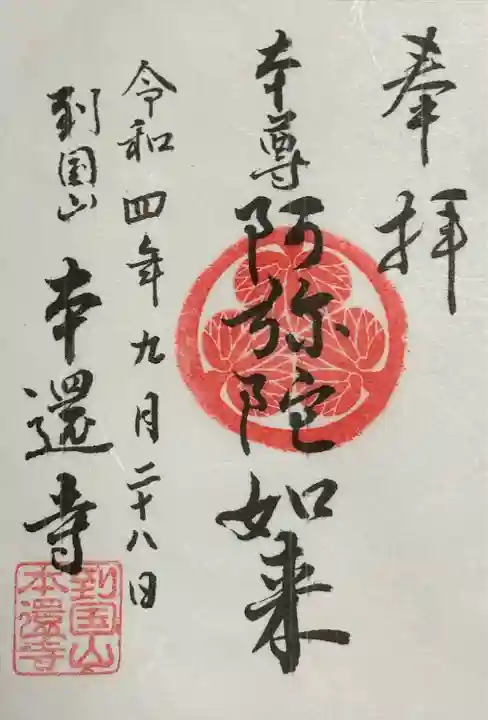 奉拝
本尊阿弥陀如来
令和四年九月二十八日
到国山本還寺
到国山
本還寺